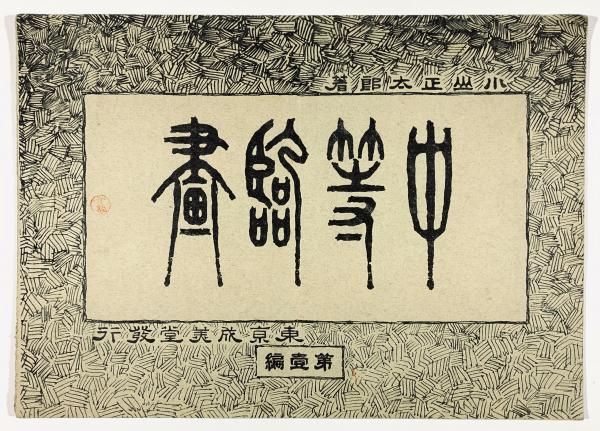 小山正太郎著
中等臨畫
東京成美堂發行
第壹編